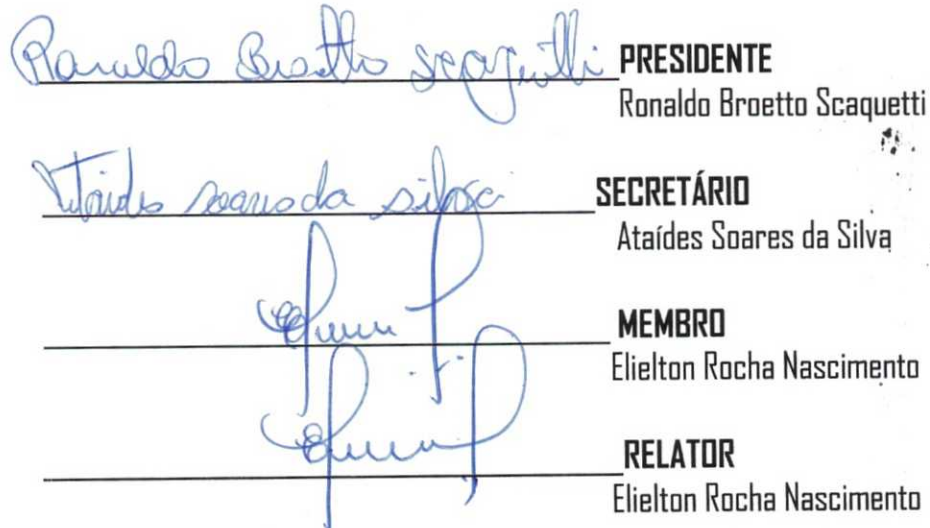 Ronaldo Broetto Scaquetti PRESIDENTE
Ronaldo Broetto Scaquetti
Ataídes Soares da Silva SECRETÁRIO
Ataídes Soares da Silva
MEMBRO
Elielton Rocha Nascimento
RELATOR
Elielton Rocha Nascimento